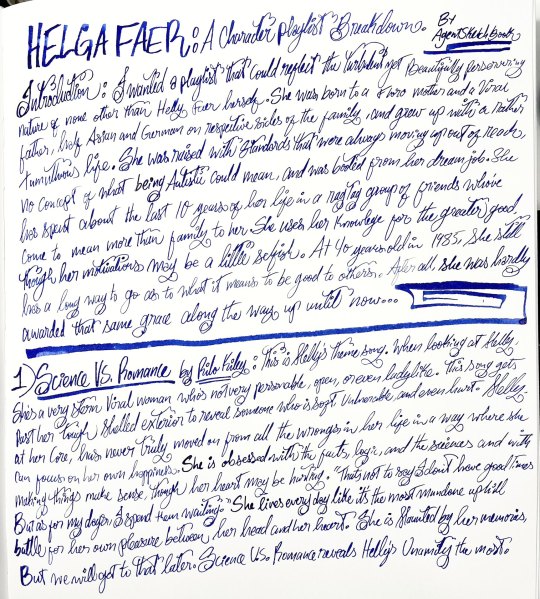 HELGA FAER: A Character playlist Breakdown. By
AgentSketchbook
Introduction: I wanted a playlist that could reflect the turbulent yet Beautifully persevering
nature of none other than Helly Faer herself. She was born to a Faro mother and a Viral
father, half Asian and German on respective sides of the family, and grew up with a rather
tumultuous life. She was raised with standards that were always moving up out of reach,
no concept of what being Autistic could mean, and was booted from her dream job. She
has spent about the last 10 years of her life in a ragtag group of friends who've
come to mean more than family to her. She uses her knowledge for the greater good,
though her motivations may be a little selfish. At 40 years old in 1985, she still
has a long way to go as to what it means to be good to others. After all, she was hardly
awarded that same grace along the way up until now...
1) Science VS. Romance by Rilo Kiley: This is Helly's theme song. When looking at Helly,
She's a very stern Viral woman who's not very personable, open, or even ladylike. This song gets
Past her tough shelled exterior to reveal someone who is soft, vulnerable, and even hurt. Helly,
at her core, has never truly moved on from all the wrongs in her life in a way where she
can focus on her own happiness. She is obsessed with the facts, logic, and the sciences and with
making things make sense, though her heart may be hurting. "That's not to say I don't have good times
But as for my days I spend them waiting". She lives every day like it's the most mundane uphill
battle for her own pleasure between her head and her heart. She is haunted by her memories,
But we will get to that later. Science VS. Romance reveals Helly's Humanity the most.